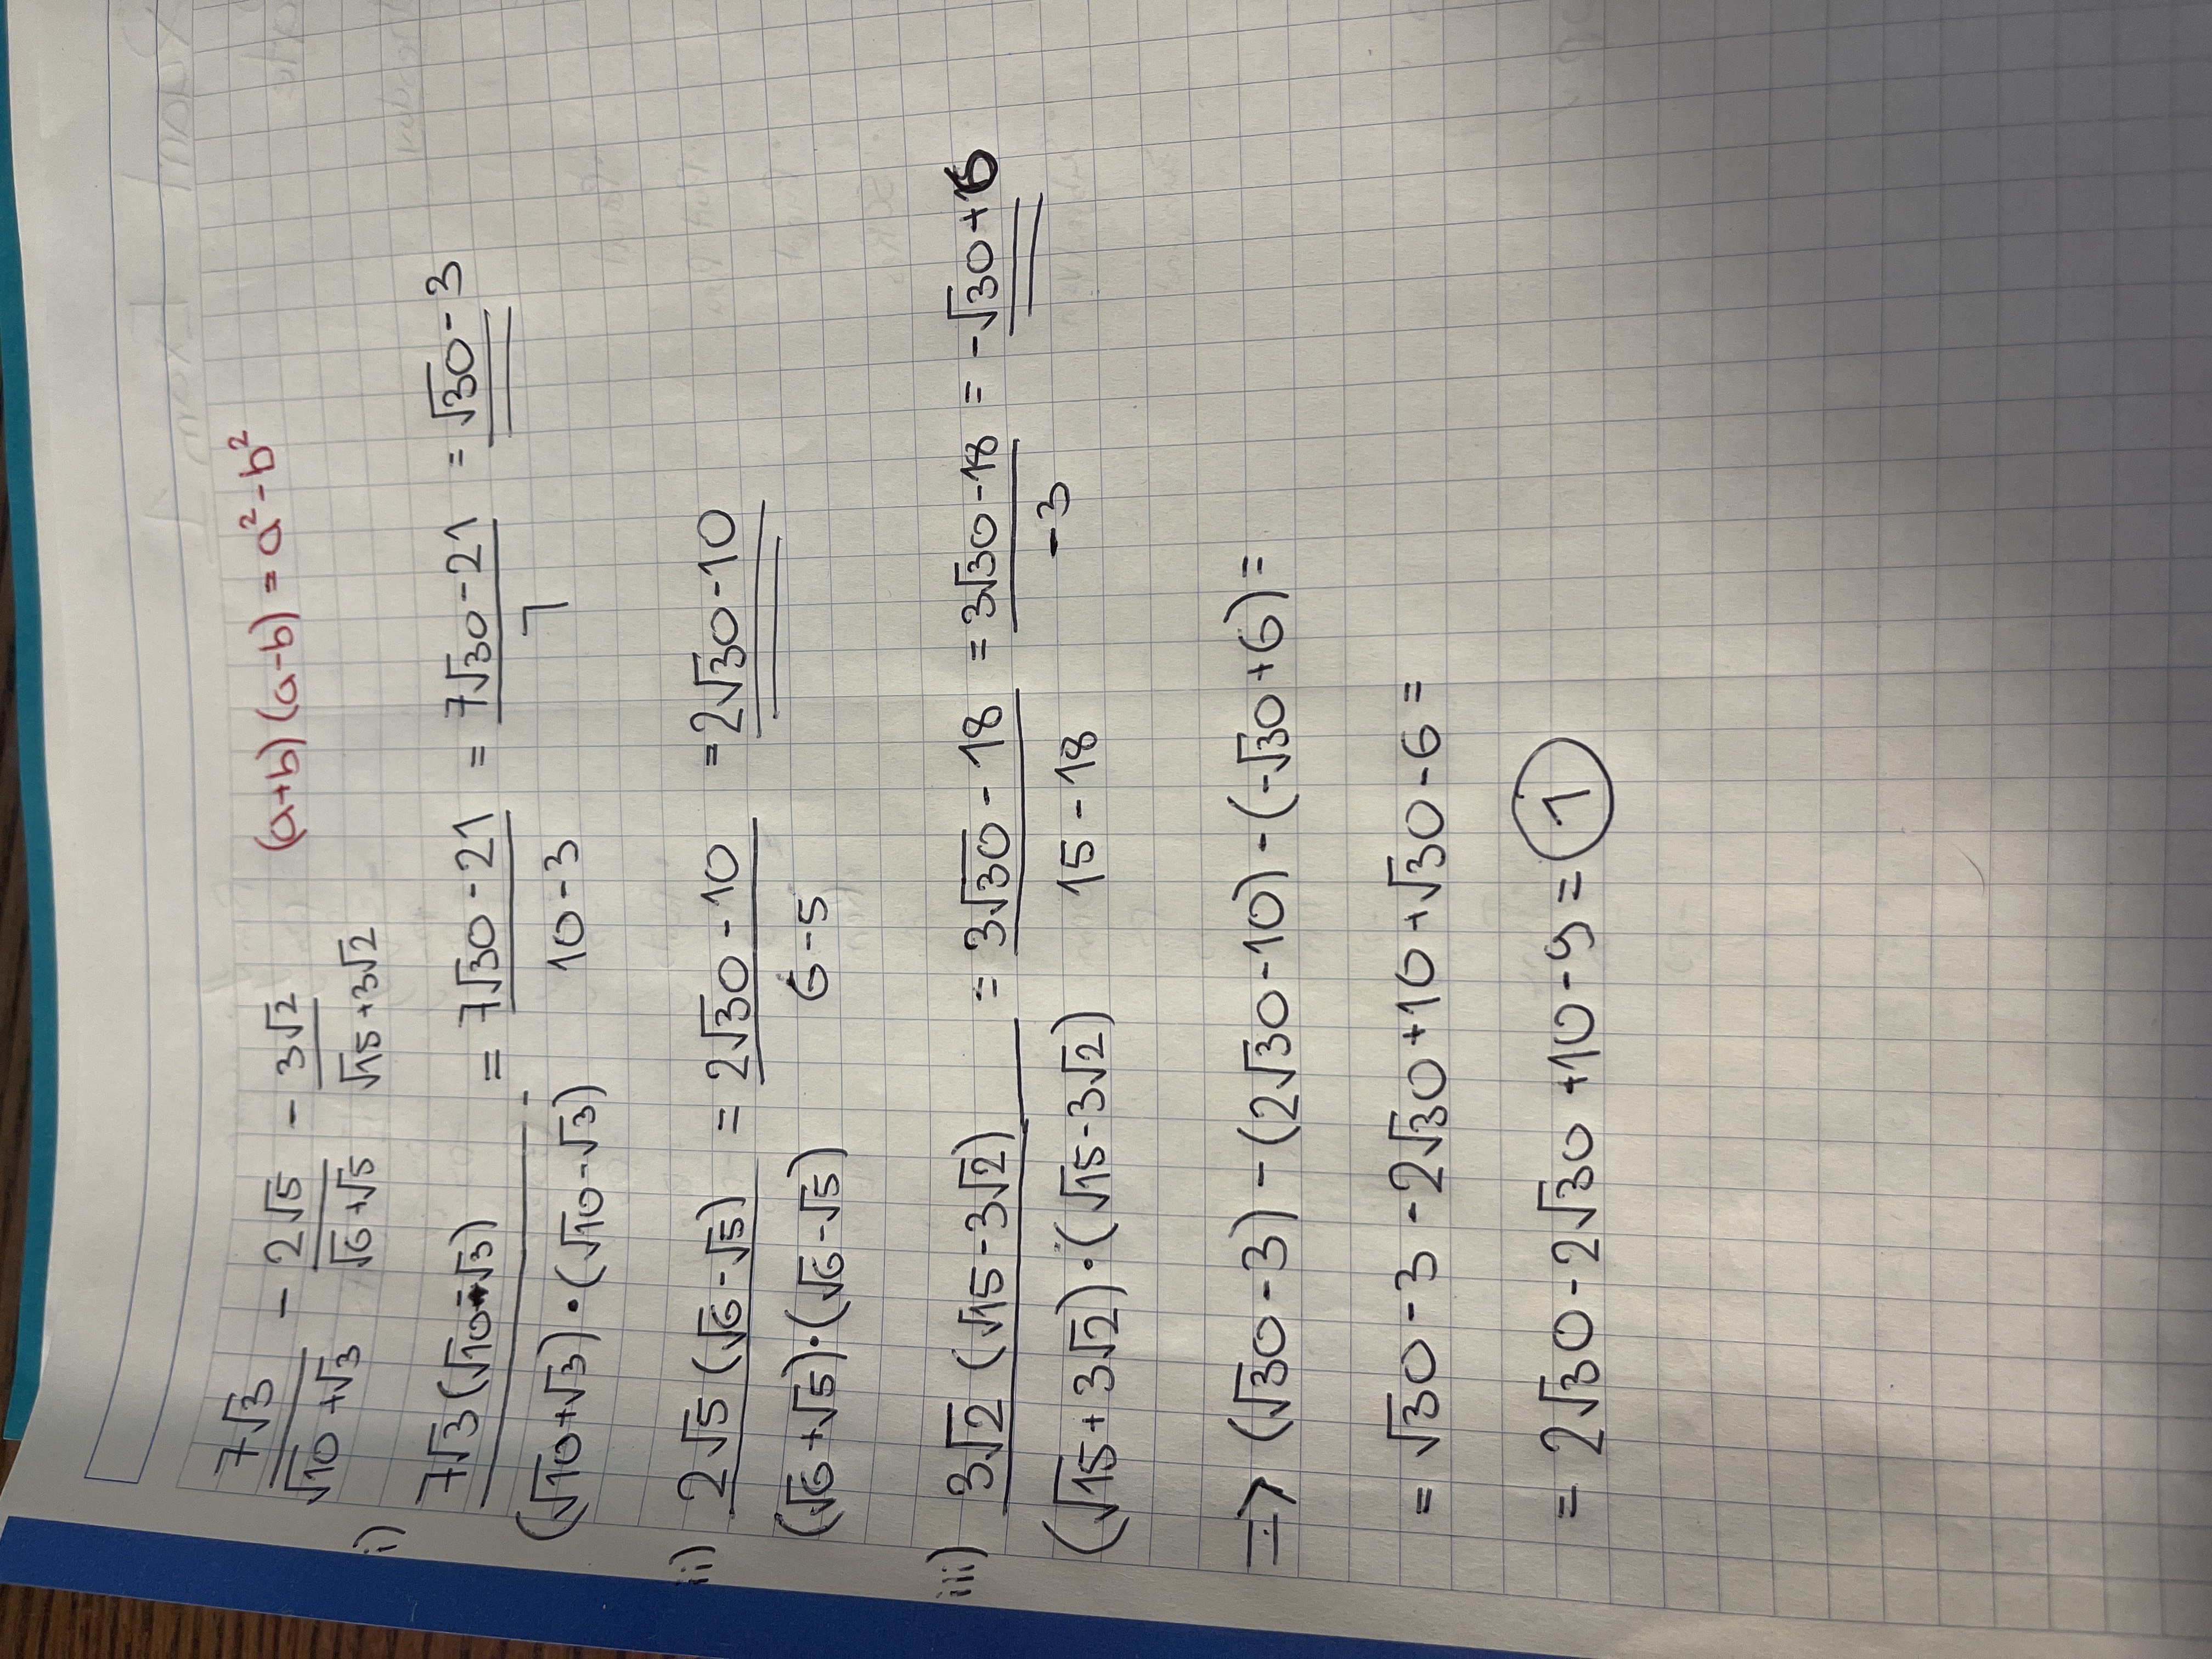 7√3/(√10+√3) - 2√5/(√6+√5) - 3√2/(√15+3√2) (a+b)(a-b)=a²-b²
i) 7√3(√10-√3)/((√10+√3)·(√10-√3)) = (7√30-21)/(10-3) = (7√30-21)/7 = √30-3
ii) 2√5(√6-√5)/((√6+√5)·(√6-√5)) = (2√30-10)/(6-5) = 2√30-10
iii) 3√2(√15-3√2)/((√15+3√2)·(√15-3√2)) = (3√30-18)/(15-18) = (3√30-18)/-3 = -√30+6
=> (√30-3)-(2√30-10)-(-√30+6)=
= √30-3-2√30+10+√30-6=
= 2√30-2√30+10-9=1